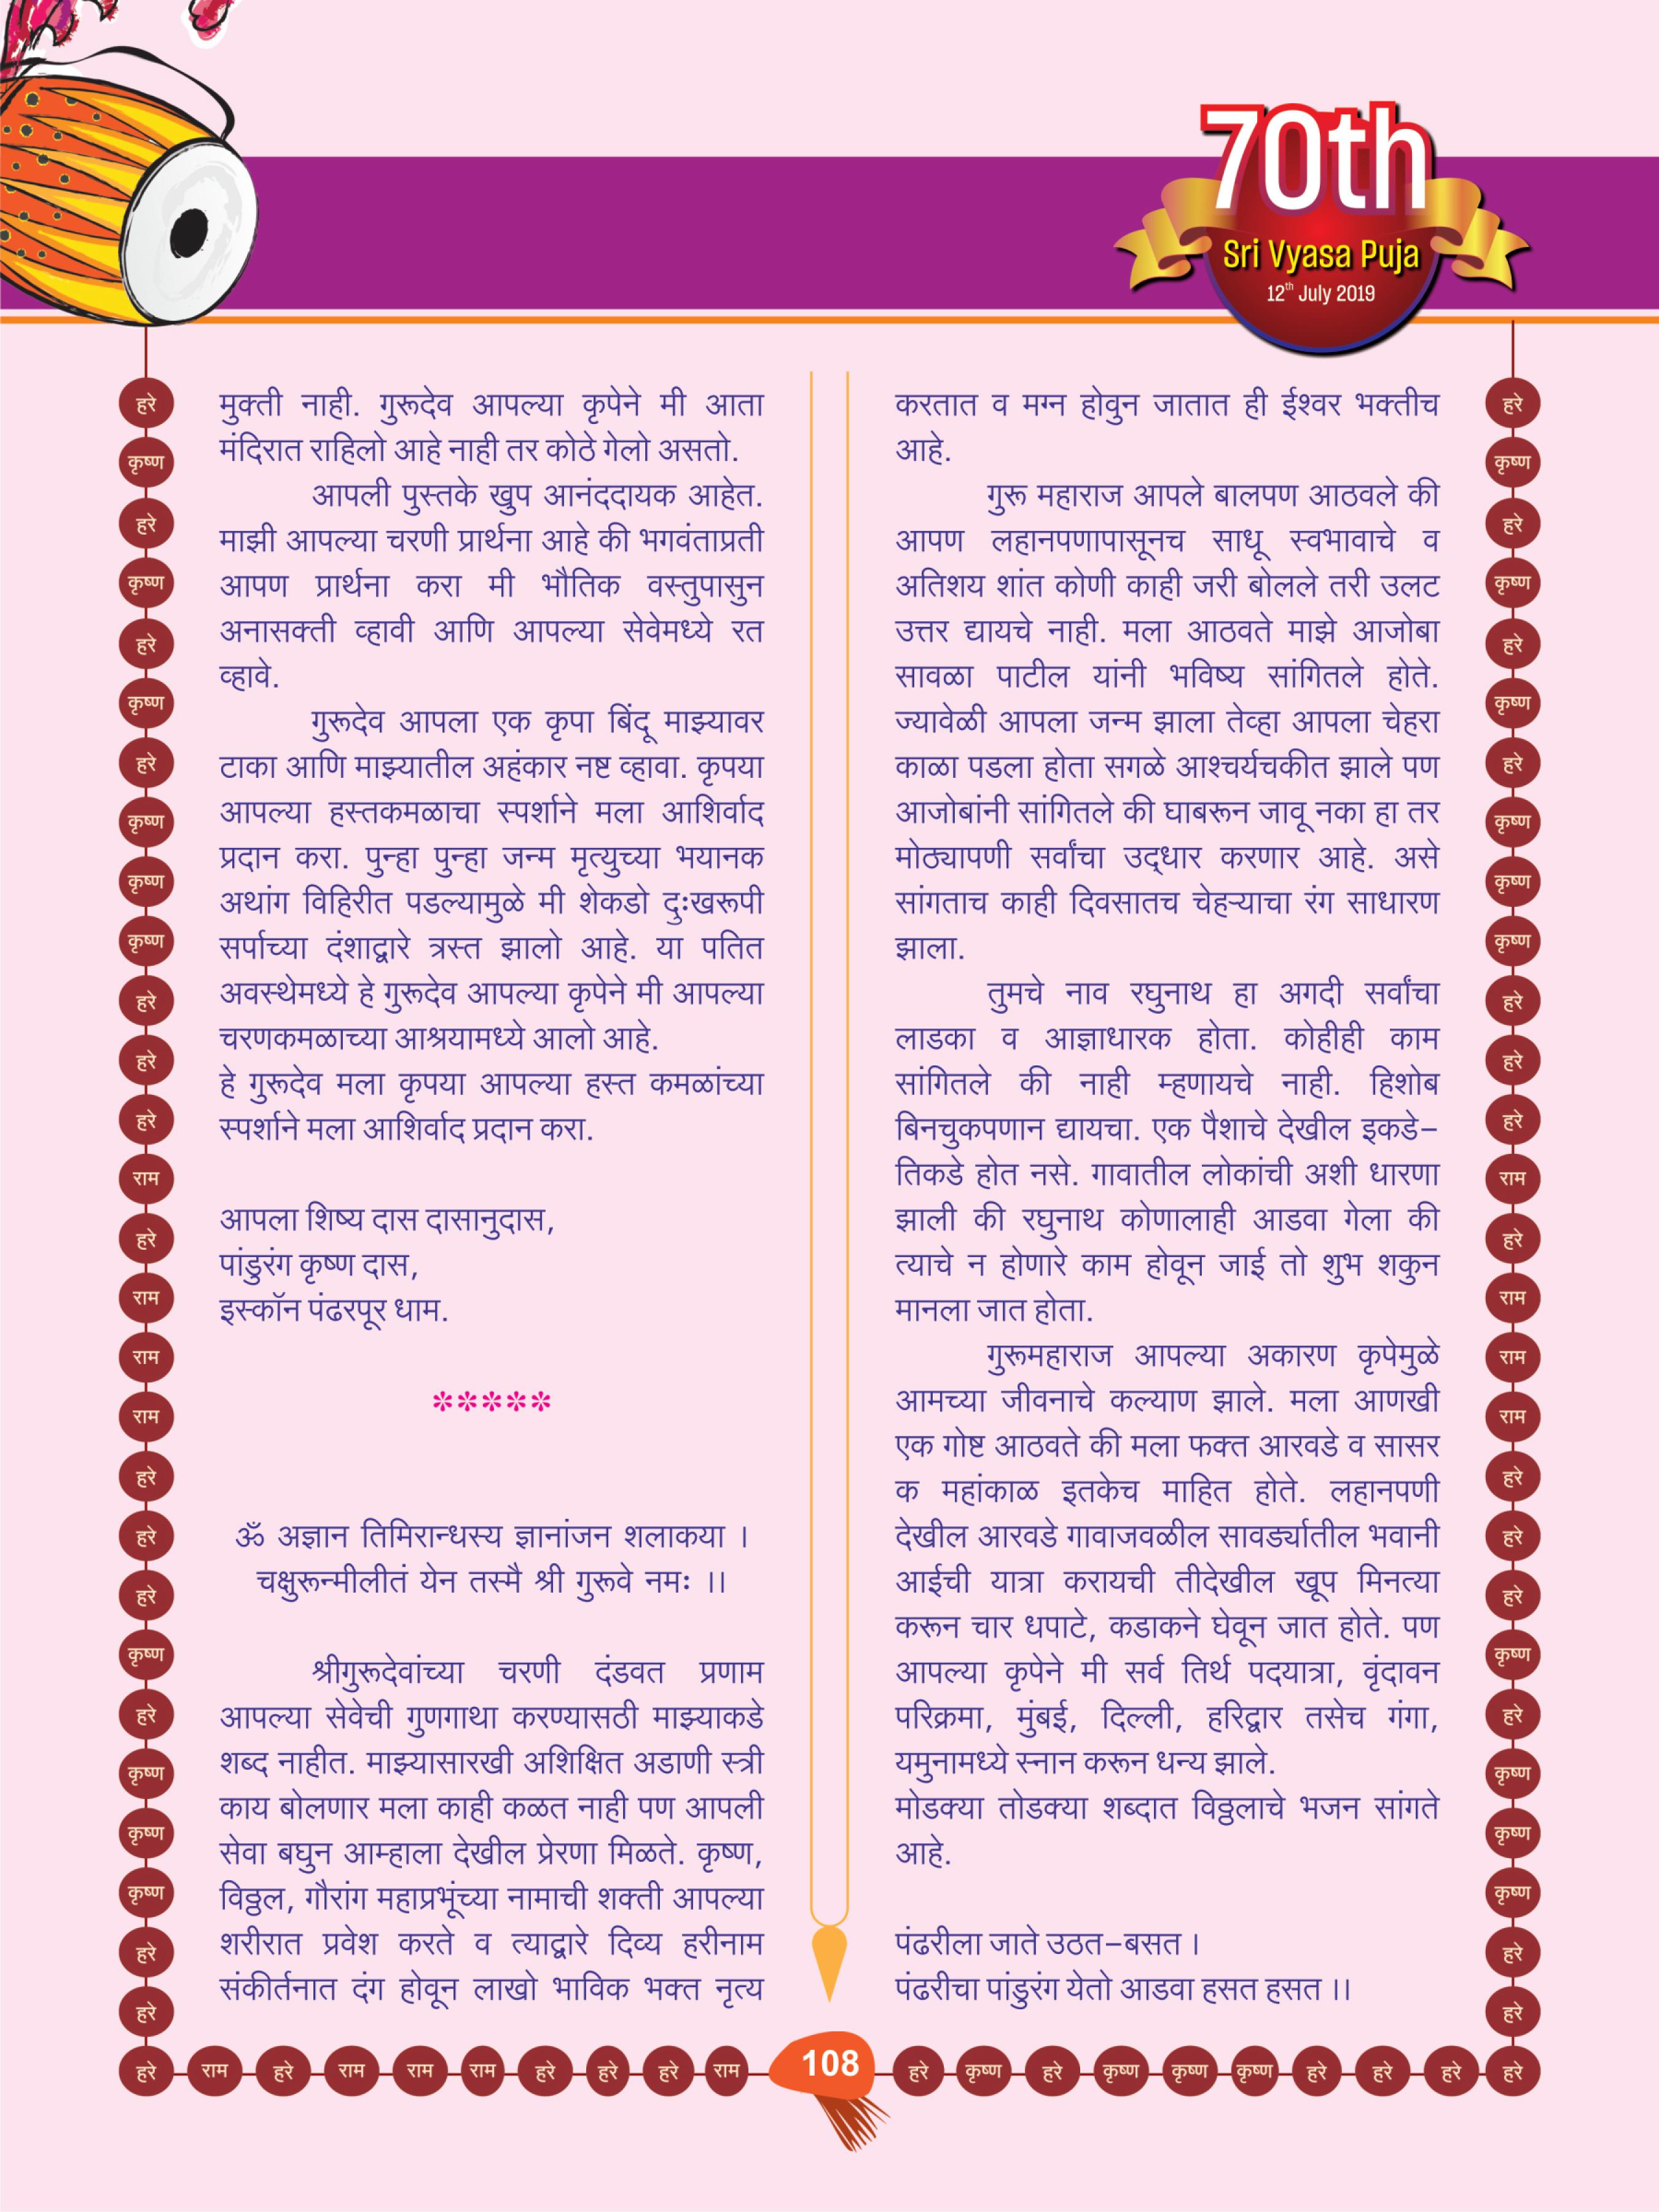 70th
Sri Vyasa Puja
12th July 2019
मुक्ती नाही. गुरूदेव आपल्या कृपेने मी आता
मंदिरात राहिलो आहे नाही तर कोठे गेलो असतो.
आपली पुस्तके खुप आनंददायक आहेत.
माझी आपल्या चरणी प्रार्थना आहे की भगवंताप्रती
आपण प्रार्थना करा मी भौतिक वस्तुपासुन
अनासक्ती व्हावी आणि आपल्या सेवेमध्ये रत
व्हावे.
गुरूदेव आपला एक कृपा बिंदू माझ्यावर
टाका आणि माझ्यातील अहंकार नष्ट व्हावा. कृपया
आपल्या हस्तकमळाचा स्पर्शाने मला आशिर्वाद
प्रदान करा. पुन्हा पुन्हा जन्म मृत्युच्या भयानक
अथांग विहिरीत पडल्यामुळे मी शेकडो दुःखरूपी
सर्पाच्या दंशाद्वारे त्रस्त झालो आहे. या पतित
अवस्थेमध्ये हे गुरूदेव आपल्या कृपेने मी आपल्या
चरणकमळाच्या आश्रयामध्ये आलो आहे.
हे गुरूदेव मला कृपया आपल्या हस्त कमळांच्या
स्पर्शाने मला आशिर्वाद प्रदान करा.
आपला शिष्य दास दासानुदास,
पांडुरंग कृष्ण दास,
इस्कॉन पंढरपूर धाम.
*****
ॐ अज्ञान तिमिरान्धस्य ज्ञानांजन शलाकया ।
चक्षुरून्मीलीतं येन तस्मै श्री गुरूवे नमः ।।
श्रीगुरूदेवांच्या चरणी दंडवत प्रणाम
आपल्या सेवेची गुणगाथा करण्यासठी माझ्याकडे
शब्द नाहीत. माझ्यासारखी अशिक्षित अडाणी स्त्री
काय बोलणार मला काही कळत नाही पण आपली
सेवा बघुन आम्हाला देखील प्रेरणा मिळते. कृष्ण,
विठ्ठल, गौरांग महाप्रभूंच्या नामाची शक्ती आपल्या
शरीरात प्रवेश करते व त्याद्वारे दिव्य हरीनाम
संकीर्तनात दंग होवून लाखो भाविक भक्त नृत्य
करतात व मग्न होवुन जातात ही ईश्वर भक्तीच
आहे.
गुरू महाराज आपले बालपण आठवले की
आपण लहानपणापासूनच साधू स्वभावाचे व
अतिशय शांत कोणी काही जरी बोलले तरी उलट
उत्तर द्यायचे नाही. मला आठवते माझे आजोबा
सावळा पाटील यांनी भविष्य सांगितले होते.
ज्यावेळी आपला जन्म झाला तेव्हा आपला चेहरा
काळा पडला होता सगळे आश्चर्यचकीत झाले पण
आजोबांनी सांगितले की घाबरून जावू नका हा तर
मोठ्यापणी सर्वांचा उद्धार करणार आहे. असे
सांगताच काही दिवसातच चेहऱ्याचा रंग साधारण
झाला.
तुमचे नाव रघुनाथ हा अगदी सर्वांचा
लाडका व आज्ञाधारक होता. कोहीही काम
सांगितले की नाही म्हणायचे नाही. हिशोब
बिनचुकपणान द्यायचा. एक पैशाचे देखील इकडे–
तिकडे होत नसे. गावातील लोकांची अशी धारणा
झाली की रघुनाथ कोणालाही आडवा गेला की
त्याचे न होणारे काम होवून जाई तो शुभ शकुन
मानला जात होता.
गुरूमहाराज आपल्या अकारण कृपेमुळे
आमच्या जीवनाचे कल्याण झाले. मला आणखी
एक गोष्ट आठवते की मला फक्त आरवडे व सासर
क महांकाळ इतकेच माहित होते. लहानपणी
देखील आरवडे गावाजवळील सावर्ड्यातील भवानी
आईची यात्रा करायची तीदेखील खूप मिनत्या
करून चार धपाटे, कडाकने घेवून जात होते. पण
आपल्या कृपेने मी सर्व तिर्थ पदयात्रा, वृंदावन
परिक्रमा, मुंबई, दिल्ली, हरिद्वार तसेच गंगा,
यमुनामध्ये स्नान करून धन्य झाले.
मोडक्या तोडक्या शब्दात विठ्ठलाचे भजन सांगते
आहे.
पंढरीला जाते उठत–बसत ।
पंढरीचा पांडुरंग येतो आडवा हसत हसत ।।
हरे
कृष्ण
हरे
कृष्ण
हरे
कृष्ण
हरे
कृष्ण
कृष्ण
कृष्ण
हरे
हरे
हरे
राम
हरे
राम
राम
राम
हरे
हरे
हरे
कृष्ण
हरे
कृष्ण
कृष्ण
कृष्ण
हरे
हरे
हरे
कृष्ण
हरे
कृष्ण
हरे
कृष्ण
हरे
कृष्ण
कृष्ण
कृष्ण
हरे
हरे
हरे
राम
हरे
राम
राम
राम
हरे
हरे
हरे
कृष्ण
हरे
कृष्ण
कृष्ण
कृष्ण
हरे
हरे
हरे राम हरे राम राम राम हरे हरे हरे राम 108 हरे कृष्ण हरे कृष्ण कृष्ण कृष्ण हरे हरे हरे हरे